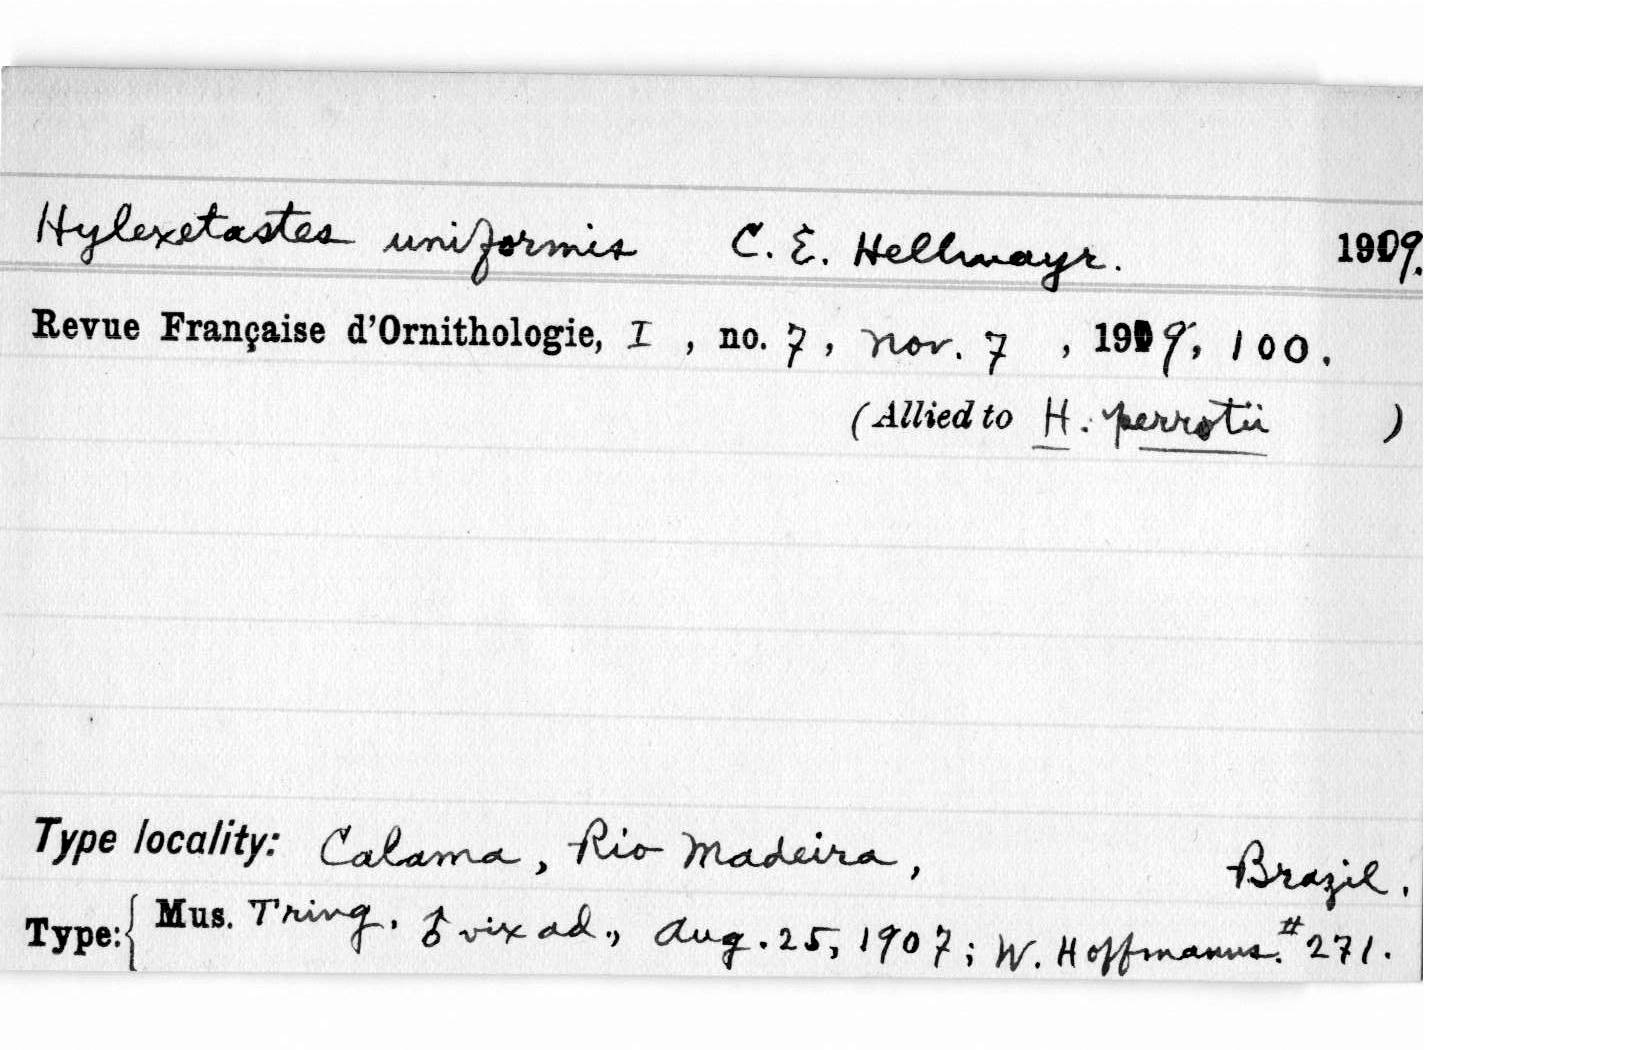 Hylexetastes uniformis C. E. Hellmayr. 1909.
Revue Française d'Ornithologie, I, no. 7, Nov. 7, 1909, 100.
(Allied to H. perrotii)
Type locality: Calama, Rio Madeira, Brazil.
Type: { Mus. Tring. ♂ vix ad., Aug. 25, 1907; W. Hoffmanns. #271.